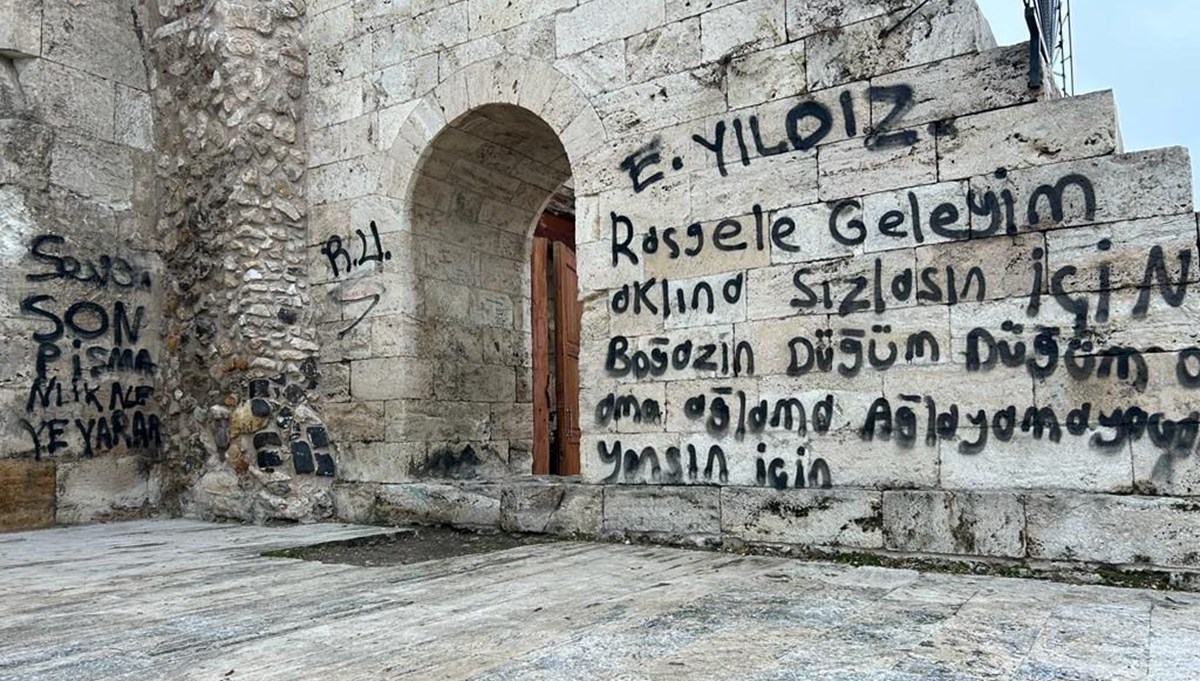 SON
PişMA
NLIK NE
YE YARAR
R.U.
E. YILDIZ
Rasgele Geleyim
aKlına Sızlasın İÇİN
Boğazın Düğüm Düğüm
ama ağlama
Yansın için